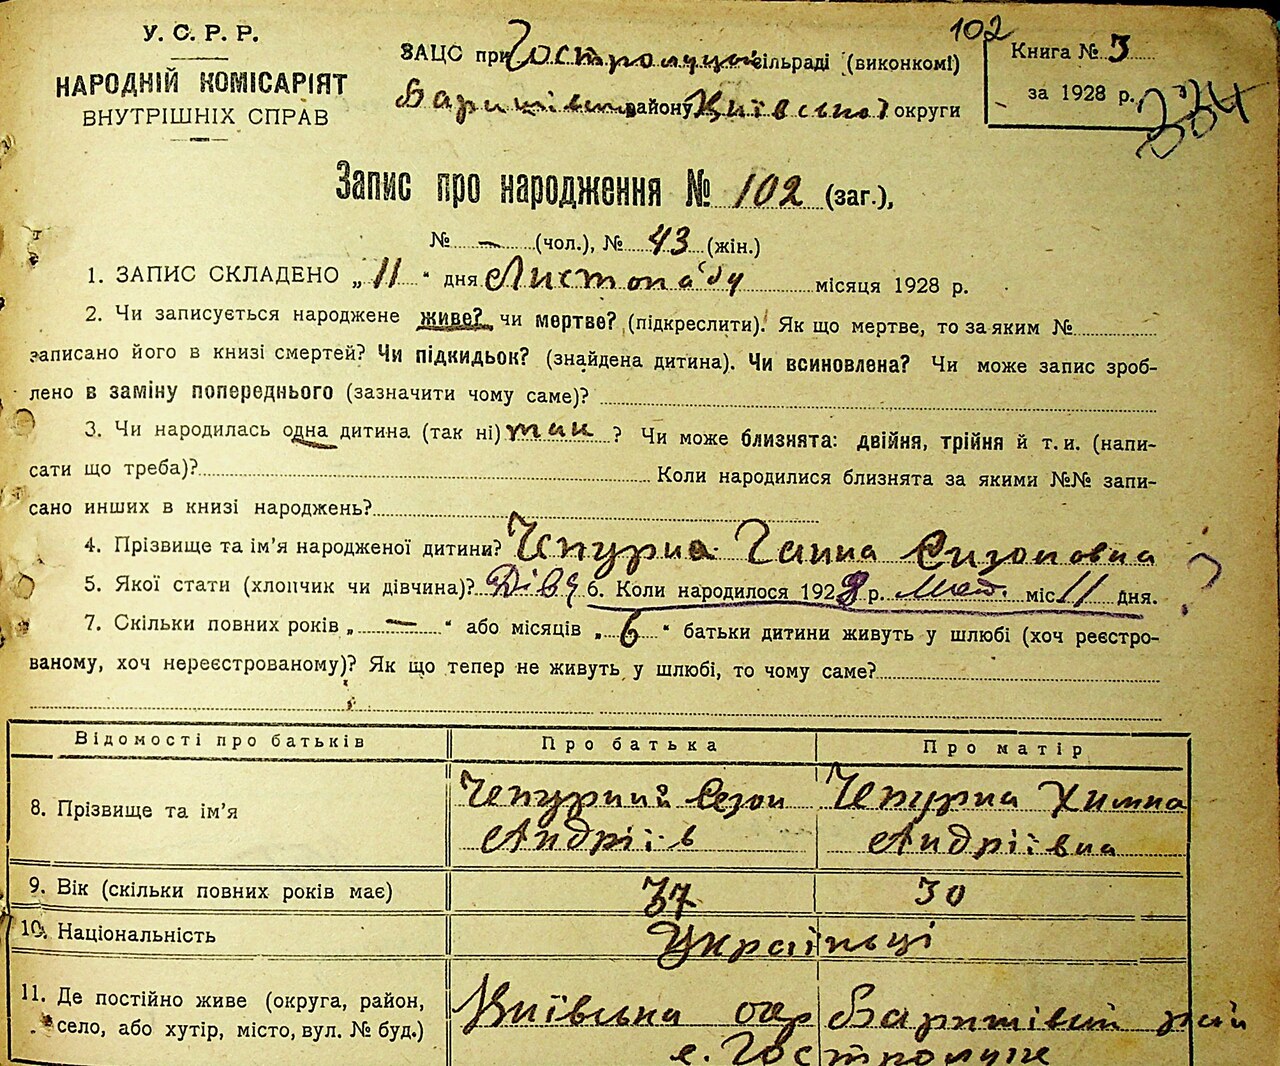 У. С. Р. Р.
НАРОДНІЙ КОМІСАРІЯТ
ВНУТРІШНІХ СПРАВ
ЗАЦС при Гостролуцькій сільраді (виконкомі)
Баришівськ району Київської округи
102
Книга № 3
за 1928 р.
334
Запис про народження № 102 (заг.),
№ — (чол.), № 43 (жін.)
1. ЗАПИС СКЛАДЕНО „11“ дня Листопаду місяця 1928 р.
2. Чи записується народжене живе? чи мертве? (підкреслити). Як що мертве, то за яким №
записано його в книзі смертей? Чи підкидьок? (знайдена дитина). Чи всиновлена? Чи може запис зроб-
лено в заміну попереднього (зазначити чому саме)?
3. Чи народилась одна дитина (так ні) так ? Чи може близнята: двійня, трійня й т. и. (напи-
сати що треба)? Коли народилися близнята за якими №№ запи-
сано инших в книзі народжень?
4. Прізвище та ім'я народженої дитини? Чепурна Ганна Сизоновна
5. Якої стати (хлопчик чи дівчина)? Дівч 6. Коли народилося 1928 р. міс. 11 дня. ?
7. Скільки повних років „—“ або місяців „6“ батьки дитини живуть у шлюбі (хоч реєстро-
ваному, хоч нереєстрованому)? Як що тепер не живуть у шлюбі, то чому саме?
Відомості про батьків Про батька Про матір
8. Прізвище та ім'я Чепурний Сезон Чепурна Химна
Андріїв Андріївна
9. Вік (скільки повних років має) 37 30
10. Національність Українці
11. Де постійно живе (округа, район, Київська окр Баришівський рай
село, або хутір, місто, вул. № буд.) с. Гостролуче